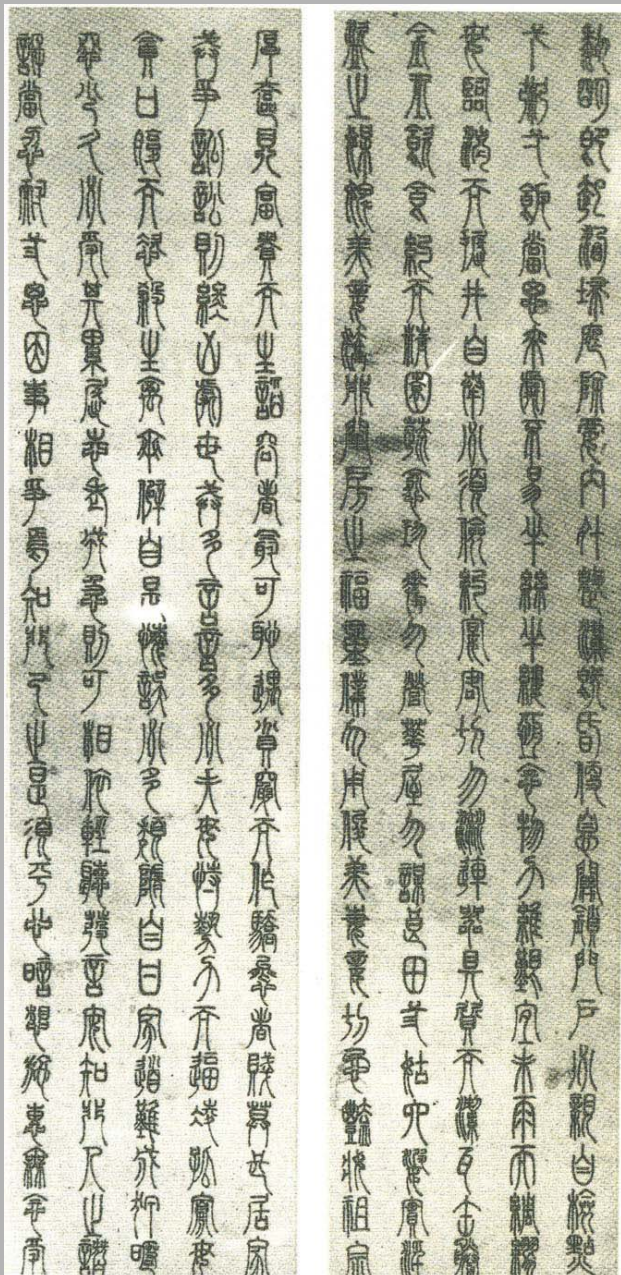 黎明即起洒掃庭除要內外整潔既昏便息關鎖門戶必親自檢點
一粥一飯當思來處不易半絲半縷恆念物力維艱宜未雨而綢繆
毋臨渴而掘井自奉必須儉約宴客切勿流連器具質而潔瓦缶勝
金玉飲食約而精園蔬愈珍羞勿營華屋勿謀良田三姑六婆實淫
盜之媒婢美妾嬌非閨房之福童僕勿用俊美妻妾切忌豔妝祖宗
厚奩見富貴而生諂容者最可恥遇貧窮而作驕態者賤莫甚居家
戒爭訟訟則終凶處世戒多言言多必失毋恃勢力而逼凌孤寡毋
貪口腹而恣殺生禽乖僻自是悔誤必多頹隳自甘家道難成狎暱
惡少久必受其累屈志老成急則可相依輕聽發言安知非人之譖
訴當忍耐三思因事相爭焉知非之是須平心暗想施惠無念受